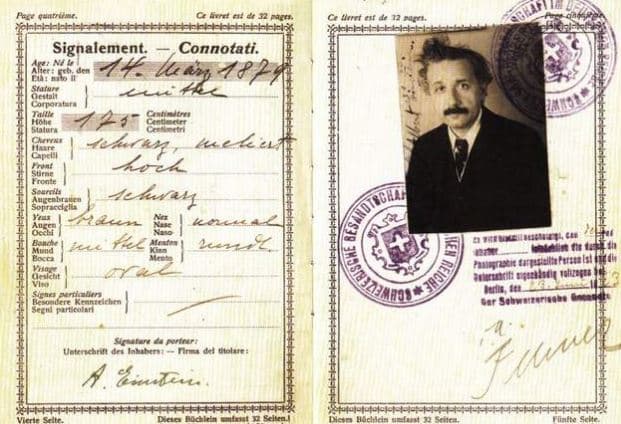 Page quatrième. Ce livret est de 32 pages.
Signalement. — Connotati.
Age: Né le
Alter: geb. den 14. März 1879
Età: nato il
Stature
Gestalt mittel
Corporatura
Taille Centimètres
Höhe 175 Centimeter
Statura Centimetri
Cheveux
Haare schwarz, meliert
Capelli
Front
Stirne hoch
Fronte
Sourcils
Augenbrauen schwarz
Sopracciglia
Yeux Nez
Augen braun Nase normal
Occhi Naso
Bouche Menton
Mund mittel Kinn rund
Bocca Mento
Visage
Gesicht oval
Viso
Signes particuliers
Besondere Kennzeichen
Segni particolari
Signature du porteur:
Unterschrift des Inhabers: – Firma del titolare:
A. Einstein.
Vierte Seite. Dieses Büchlein umfasst 32 Seiten.
Ce livret est de 32 pages. Page cinquième.
SCHWEIZERISCHE GESANDTSCHAFT
DEUTSCHEN REICHE
SCHWEIZERISCHE GESANDTSCHAFT
Es wird hiermit bescheinigt, dass
Inhaber die durch die
Photographie dargestellte Person ist und die
Unterschrift eigenhändig vollzogen hat
Berlin, den
Der Schweizerische Gesandte
Dieses Büchlein umfasst 32 Seiten. Fünfte Seite.